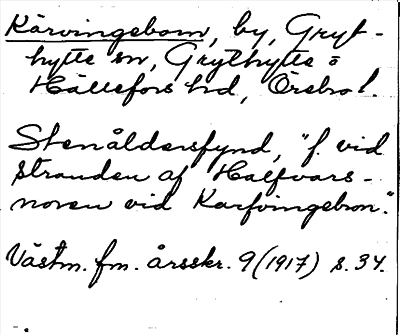 Kärvingeborn, by, Gryt-
hytte sn, Grythytte o
Hällefors hd, Örebro l.
Stenåldersfynd, "f. vid
stranden af Halfvars-
noren vid Karfvingebron."
Västm. fm. årsskr. 9 (1917) s. 34.